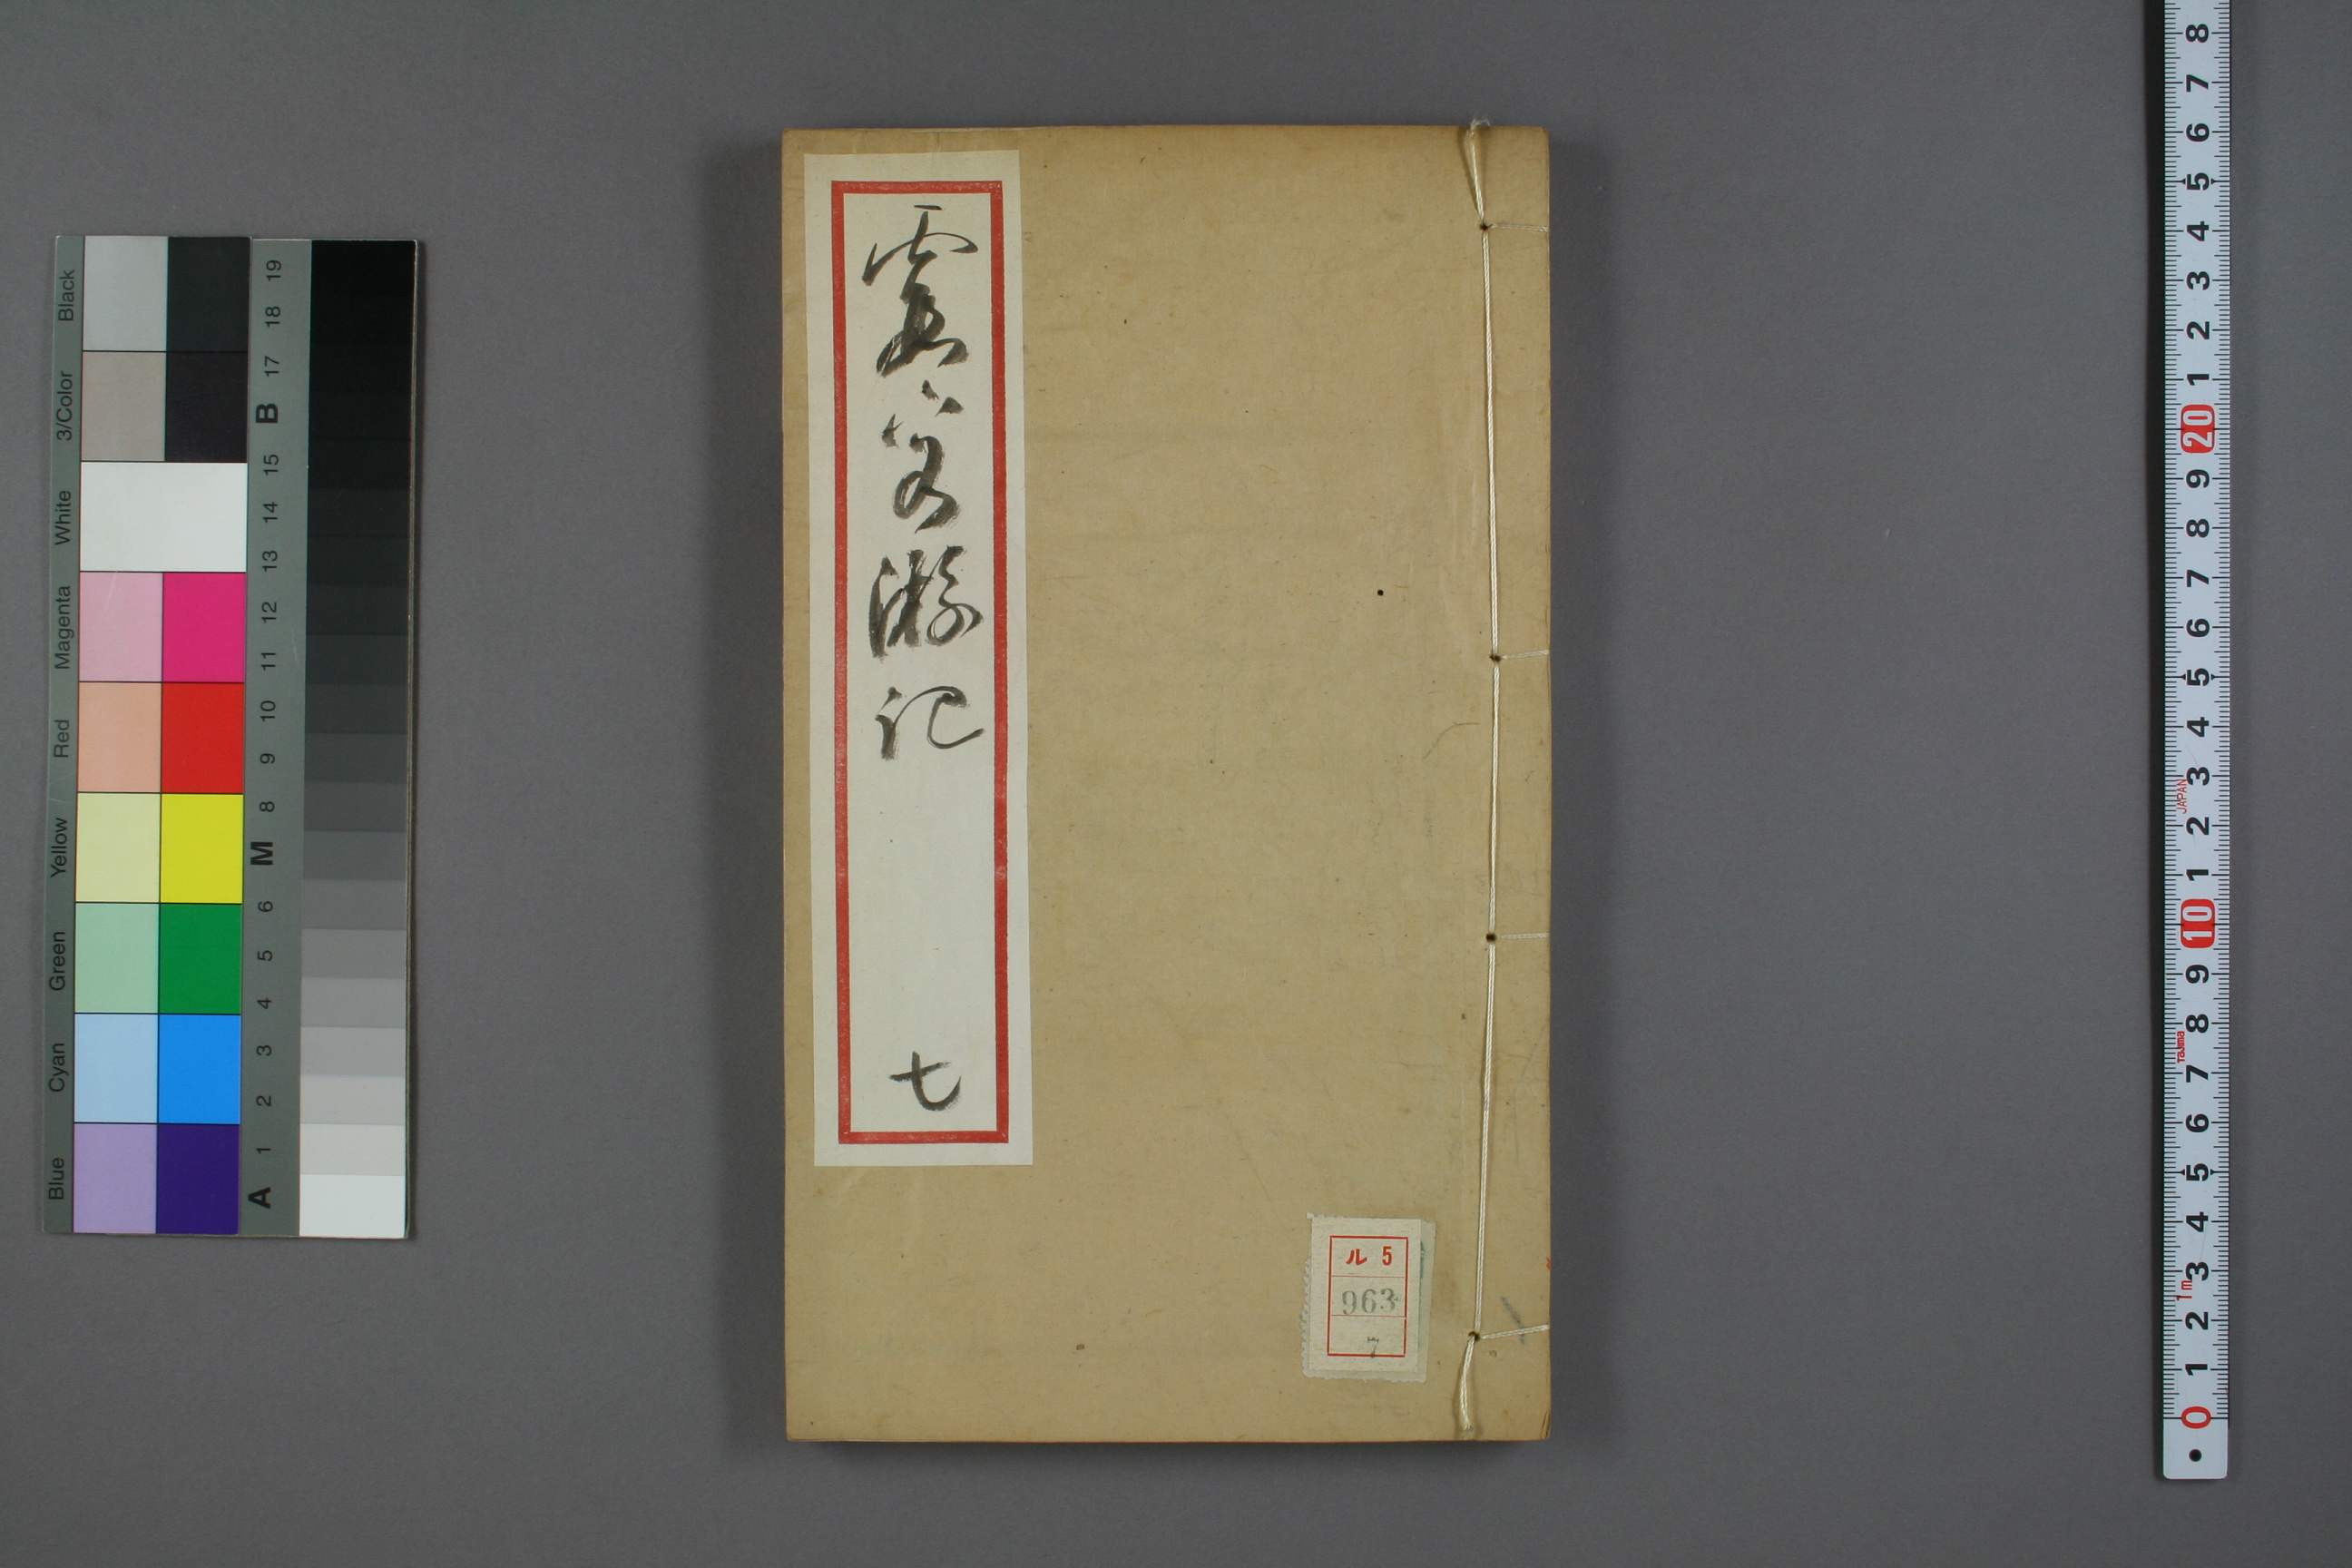 Blue Cyan Green Yellow Red Magenta White 3/Color Black
A 1 2 3 4 5 6 M 8 9 10 11 12 13 14 15 B 17 18 19
霞客游記 七
ル 5
963
7
8 7 6 5 4 3 2 1 20 9 8 7 6 5 4 3 2 1 10 9 8 7 6 5 4 3 2 1 0
JAPAN
Tajima
1m